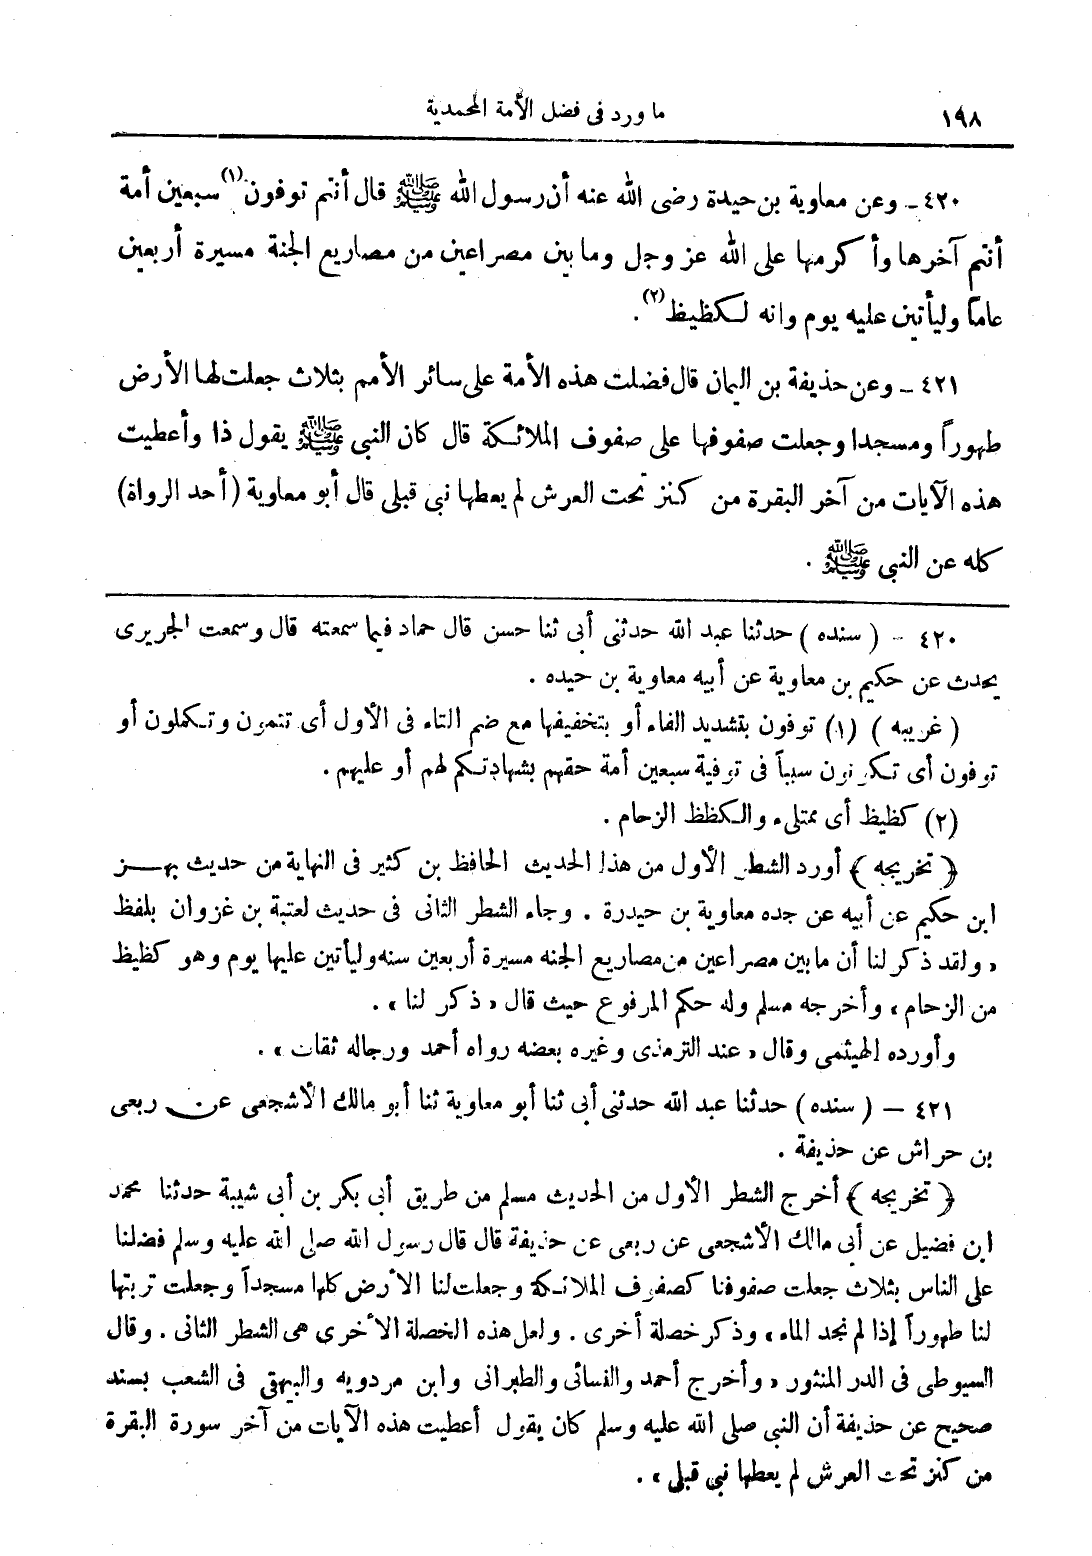 ١٩٨
ما ورد فى فضل الأمة المحمدية
٤٢٠ــ وعن معاوية بن حيدة رضى الله عنه أن رسول الله ﷺ قال أنتم توفون(١) سبعين أمة
أنتم آخرها وأكرمها على الله عز وجل وما بين مصراعين من مصاريع الجنة مسيرة أربعين
عاماً وليأتين عليه يوم وانه لكظيظ(٢).
٤٢١ــ وعن حذيفة بن اليمان قال فضلت هذه الأمة على سائر الأمم بثلاث جعلت لها الأرض
طهوراً ومسجدا وجعلت صفوفها على صفوف الملائكة قال كان النبى ﷺ يقول ذا وأعطيت
هذه الآيات من آخر البقرة من كنز تحت العرش لم يعطها نبى قبلى قال أبو معاوية (أحد الرواة)
كله عن النبى ﷺ .
٤٢٠ - (سنده) حدثنا عبد الله حدثنى أبى ثنا حسن قال حماد فيما سمعته قال وسمعت الجريرى
يحدث عن حكيم بن معاوية عن أبيه معاوية بن حيده .
(غريبه) (١) توفون بتشديد الفاء أو بتخفيفها مع ضم التاء فى الأول أى تتمون وتكملون أو
توفون أى تكونون سبباً فى توفية سبعين أمة حقهم بشهادتكم لهم أو عليهم.
(٢) كظيظ أى ممتلىء والكظظ الزحام .
﴿تخريجه﴾ أورد الشطر الأول من هذا الحديث الحافظ بن كثير فى النهاية من حديث بهز
ابن حكيم عن أبيه عن جده معاوية بن حيدرة . وجاء الشطر الثانى فى حديث لعتبة بن غزوان بلفظ
«ولقد ذكر لنا أن ما بين مصراعين من مصاريع الجنه مسيرة أربعين سنه وليأتين عليها يوم وهو كظيظ
من الزحام» وأخرجه مسلم وله حكم المرفوع حيث قال «ذكر لنا» .
وأورده الهيثمى وقال «عند الترمذى وغيره بعضه رواه أحمد ورجاله ثقات» .
٤٢١ – (سنده) حدثنا عبد الله حدثنى أبى ثنا أبو معاوية ثنا أبو مالك الأشجعى عن ربعى
بن حراش عن حذيفة .
﴿تخريجه﴾ أخرج الشطر الأول من الحديث مسلم من طريق أبى بكر بن أبى شيبة حدثنا محمد
ابن فضيل عن أبى مالك الأشجعى عن ربعى عن حذيفة قال قال رسول الله صلى الله عليه وسلم فضلنا
على الناس بثلاث جعلت صفوفنا كصفوف الملائكة وجعلت لنا الأرض كلها مسجداً وجعلت تربتها
لنا طهوراً إذا لم نجد الماء» وذكر خصلة أخرى . ولعل هذه الخصلة الأخرى هى الشطر الثانى . وقال
السيوطى فى الدر المنثور «وأخرج أحمد والنسائى والطبرانى وابن مردويه والبيهقى فى الشعب بسند
صحيح عن حذيفة أن النبى صلى الله عليه وسلم كان يقول أعطيت هذه الآيات من آخر سورة البقرة
من كنز تحت العرش لم يعطها نبى قبلى» .